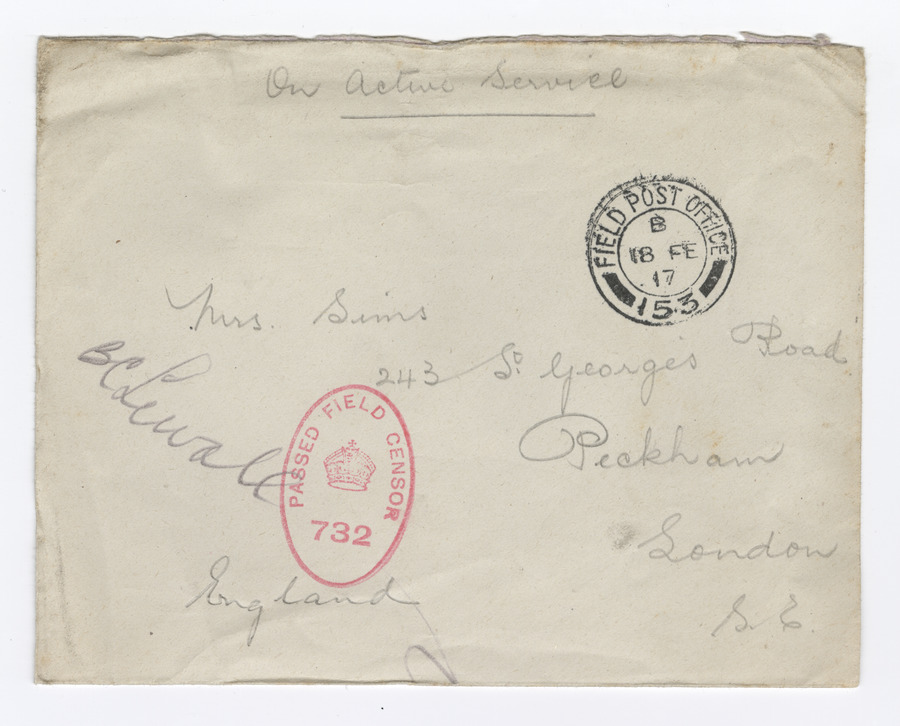 On Active Service
FIELD POST OFFICE
B
18 FE
17
153
Mrs. Sims
243 St. Georges Road
Peckham
London
S. E.
England
PASSED FIELD CENSOR
732